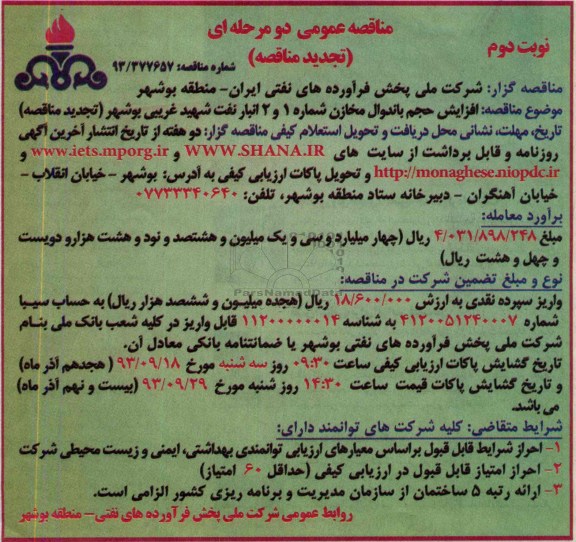 مناقصه عمومی دو مرحله ای
(تجدید مناقصه)
نوبت دوم
شماره مناقصه: ۹۳/۳۷۷۶۵۷
مناقصه گزار: شرکت ملی پخش فرآورده های نفتی ایران- منطقه بوشهر
موضوع مناقصه: افزایش حجم باندوال مخازن شماره ۱ و ۲ انبار نفت شهید غریبی بوشهر (تجدید مناقصه)
تاریخ، مهلت، نشانی محل دریافت و تحویل استعلام کیفی مناقصه گزار: دو هفته از تاریخ انتشار آخرین آگهی
روزنامه و قابل برداشت از سایت های WWW.SHANA.IR و www.iets.mporg.ir و
http://monaghese.niopdc.ir و تحویل پاکات ارزیابی کیفی به آدرس: بوشهر - خیابان انقلاب -
خیابان آهنگران - دبیرخانه ستاد منطقه بوشهر، تلفن: ۰۷۷۳۳۳۴۰۶۴۰
برآورد معامله:
مبلغ ۴/۰۳۱/۸۹۸/۲۴۸ ریال (چهار میلیارد و سی و یک میلیون و هشتصد و نود و هشت هزارو دویست
و چهل و هشت ریال)
نوع و مبلغ تضمین شرکت در مناقصه:
واریز سپرده نقدی به ارزش ۱۸/۶۰۰/۰۰۰ ریال (هجده میلیون و ششصد هزار ریال) به حساب سیبا
شماره ۴۱۲۰۰۵۱۲۴۰۰۰۷ به شناسه ۱۱۲۰۰۰۰۰۰۱۴ قابل واریز در کلیه شعب بانک ملی بنام
شرکت ملی پخش فرآورده های نفتی بوشهر یا ضمانتنامه بانکی معادل آن.
تاریخ گشایش پاکات ارزیابی کیفی ساعت ۰۹:۳۰ روز سه شنبه مورخ ۹۳/۰۹/۱۸ ( هجدهم آذر ماه)
و تاریخ گشایش پاکات قیمت ساعت ۱۴:۳۰ روز شنبه مورخ ۹۳/۰۹/۲۹ (بیست و نهم آذر ماه)
می باشد.
شرایط متقاضی: کلیه شرکت های توانمند دارای:
۱- احراز شرایط قابل قبول براساس معیارهای ارزیابی توانمندی بهداشتی، ایمنی و زیست محیطی شرکت
۲- احراز امتیاز قابل قبول در ارزیابی کیفی (حداقل ۶۰ امتیاز)
۳- ارائه رتبه ۵ ساختمان از سازمان مدیریت و برنامه ریزی کشور الزامی است.
روابط عمومی شرکت ملی پخش فرآورده های نفتی- منطقه بوشهر
ParsNamadData